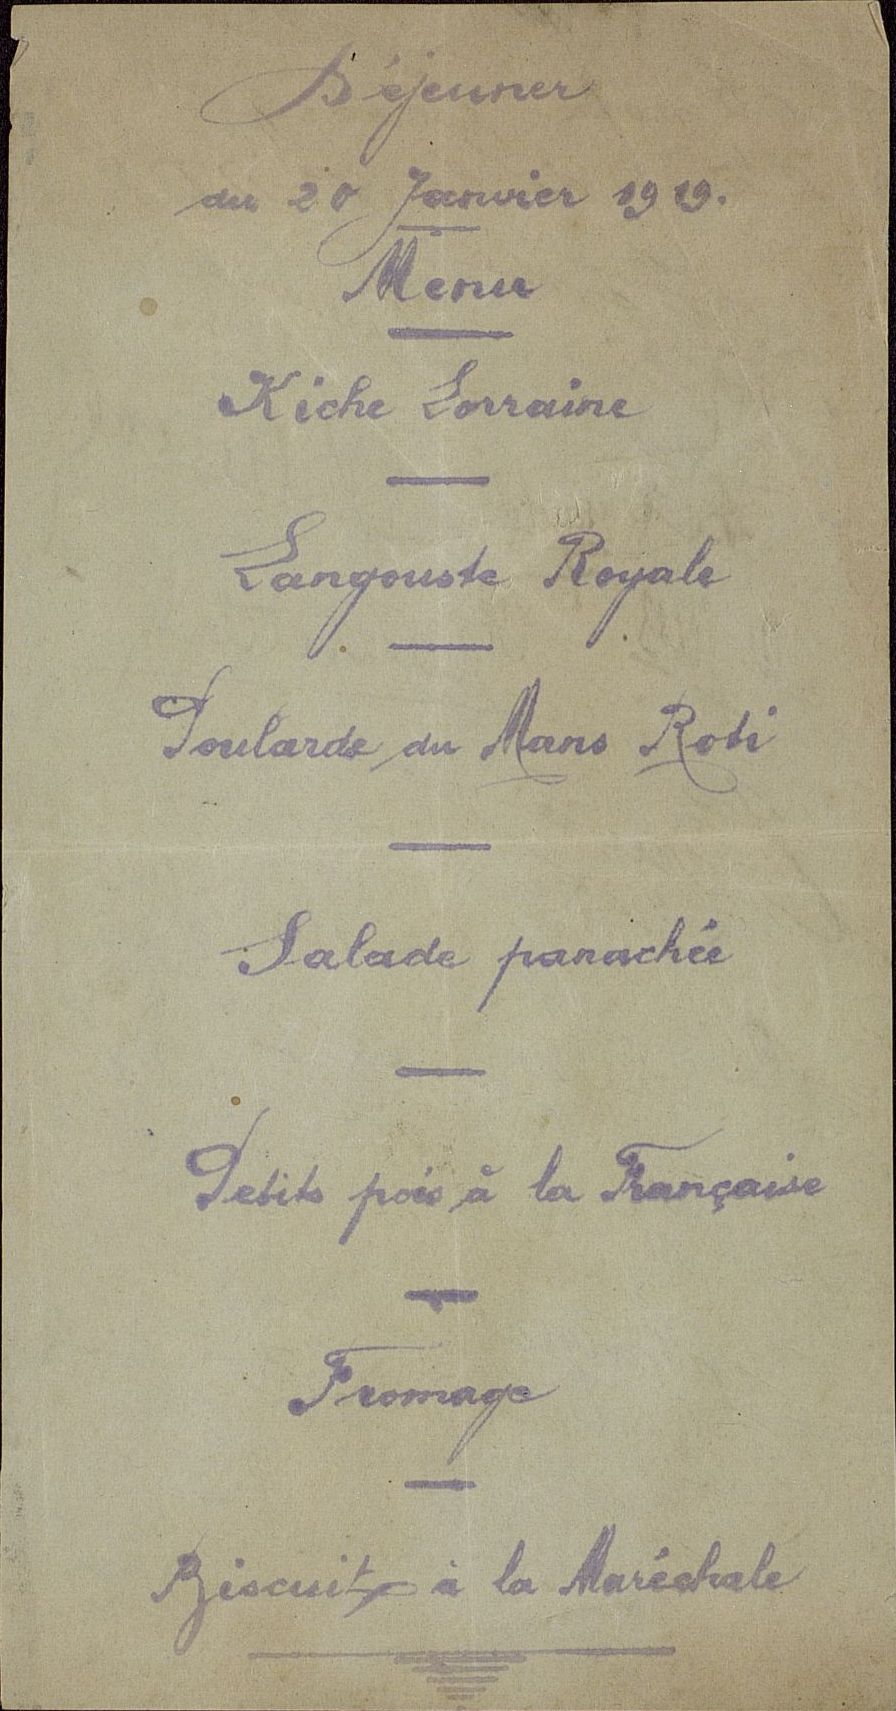 Déjeuner
du 20 Janvier 1919.
Menu
Kiche Lorraine
Langouste Royale
Poularde du Mans Roti
Salade panachée
Petits pois à la Française
Fromage
Biscuit à la Maréchale